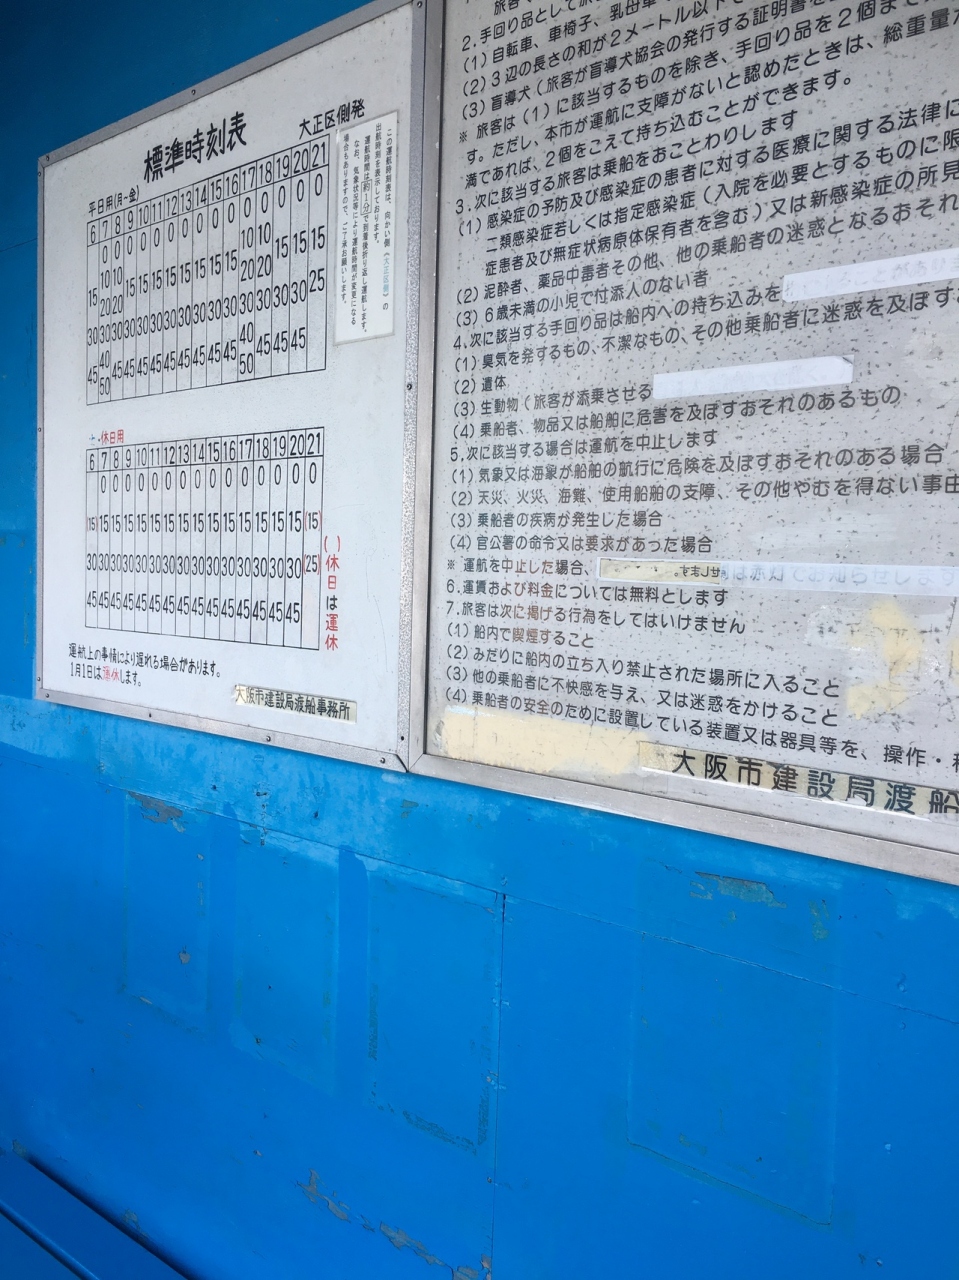 標準時刻表
大正区側発
平日用(月~金)
6 7 8 9 10 11 12 13 14 15 16 17 18 19 20 21
0 0 0 0 0 0 0 0 0 0 0 0 0 0 0
10 10 10 10
15 15 15 15 15 15 15 15 15 15 15 15
20 20 20 20
30 30 30 30 30 30 30 30 30 30 30 30 30 30 30 25
40 40 40
45 45 45 45 45 45 45 45 45 45 45 45 45
50 50 50
この運航時刻表は、向かい側(大正区側)の
出航時刻を表示しております。
運航時間は約1分で到着後折り返し運航します。
なお、気象状況等により運航時間が変更になる
場合もありますので、ご了承お願いします。
土・休日用
6 7 8 9 10 11 12 13 14 15 16 17 18 19 20 21
0 0 0 0 0 0 0 0 0 0 0 0 0 0 0
(15) 15 15 15 15 15 15 15 15 15 15 15 15 15 15 (15)
30 30 30 30 30 30 30 30 30 30 30 30 30 30 30 (25)
45 45 45 45 45 45 45 45 45 45 45 45 45 45 45
( )休日は運休
運航上の事情により遅れる場合があります。
1月1日は運休します。
大阪市建設局渡船事務所
2.手回り品として旅
(1)自転車、車椅子、乳母車
(2)3辺の長さの和が2メートル以下
(3)盲導犬(旅客が盲導犬協会の発行する証明書を
※ 旅客は(1)に該当するものを除き、手回り品を2個まで
す。ただし、本市が運航に支障がないと認めたときは、総重量
満であれば、2個をこえて持ち込むことができます。
3.次に該当する旅客は乗船をおことわりします
(1)感染症の予防及び感染症の患者に対する医療に関する法律に
二類感染症若しくは指定感染症(入院を必要とするものに限
症患者及び無症状病原体保有者を含む)又は新感染症の所見
(2)泥酔者、薬品中毒者その他、他の乗船者の迷惑となるおそれ
(3)6歳未満の小児で付添人のない者
4.次に該当する手回り品は船内への持ち込みを
(1)臭気を発するもの、不潔なもの、その他乗船者に迷惑を及ぼす
(2)遺体
(3)生動物(旅客が添乗させる
(4)乗船者、物品又は船舶に危害を及ぼすおそれのあるもの
5.次に該当する場合は運航を中止します
(1)気象又は海象が船舶の航行に危険を及ぼすおそれのある場合
(2)天災、火災、海難、使用船舶の支障、その他やむを得ない事由
(3)乗船者の疾病が発生した場合
(4)官公署の命令又は要求があった場合
※ 運航を中止した場合、
6.運賃および料金については無料とします
7.旅客は次に掲げる行為をしてはいけません
(1)船内で喫煙すること
(2)みだりに船内の立ち入り禁止された場所に入ること
(3)他の乗船者に不快感を与え、又は迷惑をかけること
(4)乗船者の安全のために設置している装置又は器具等を、操作・移
大阪市建設局渡船